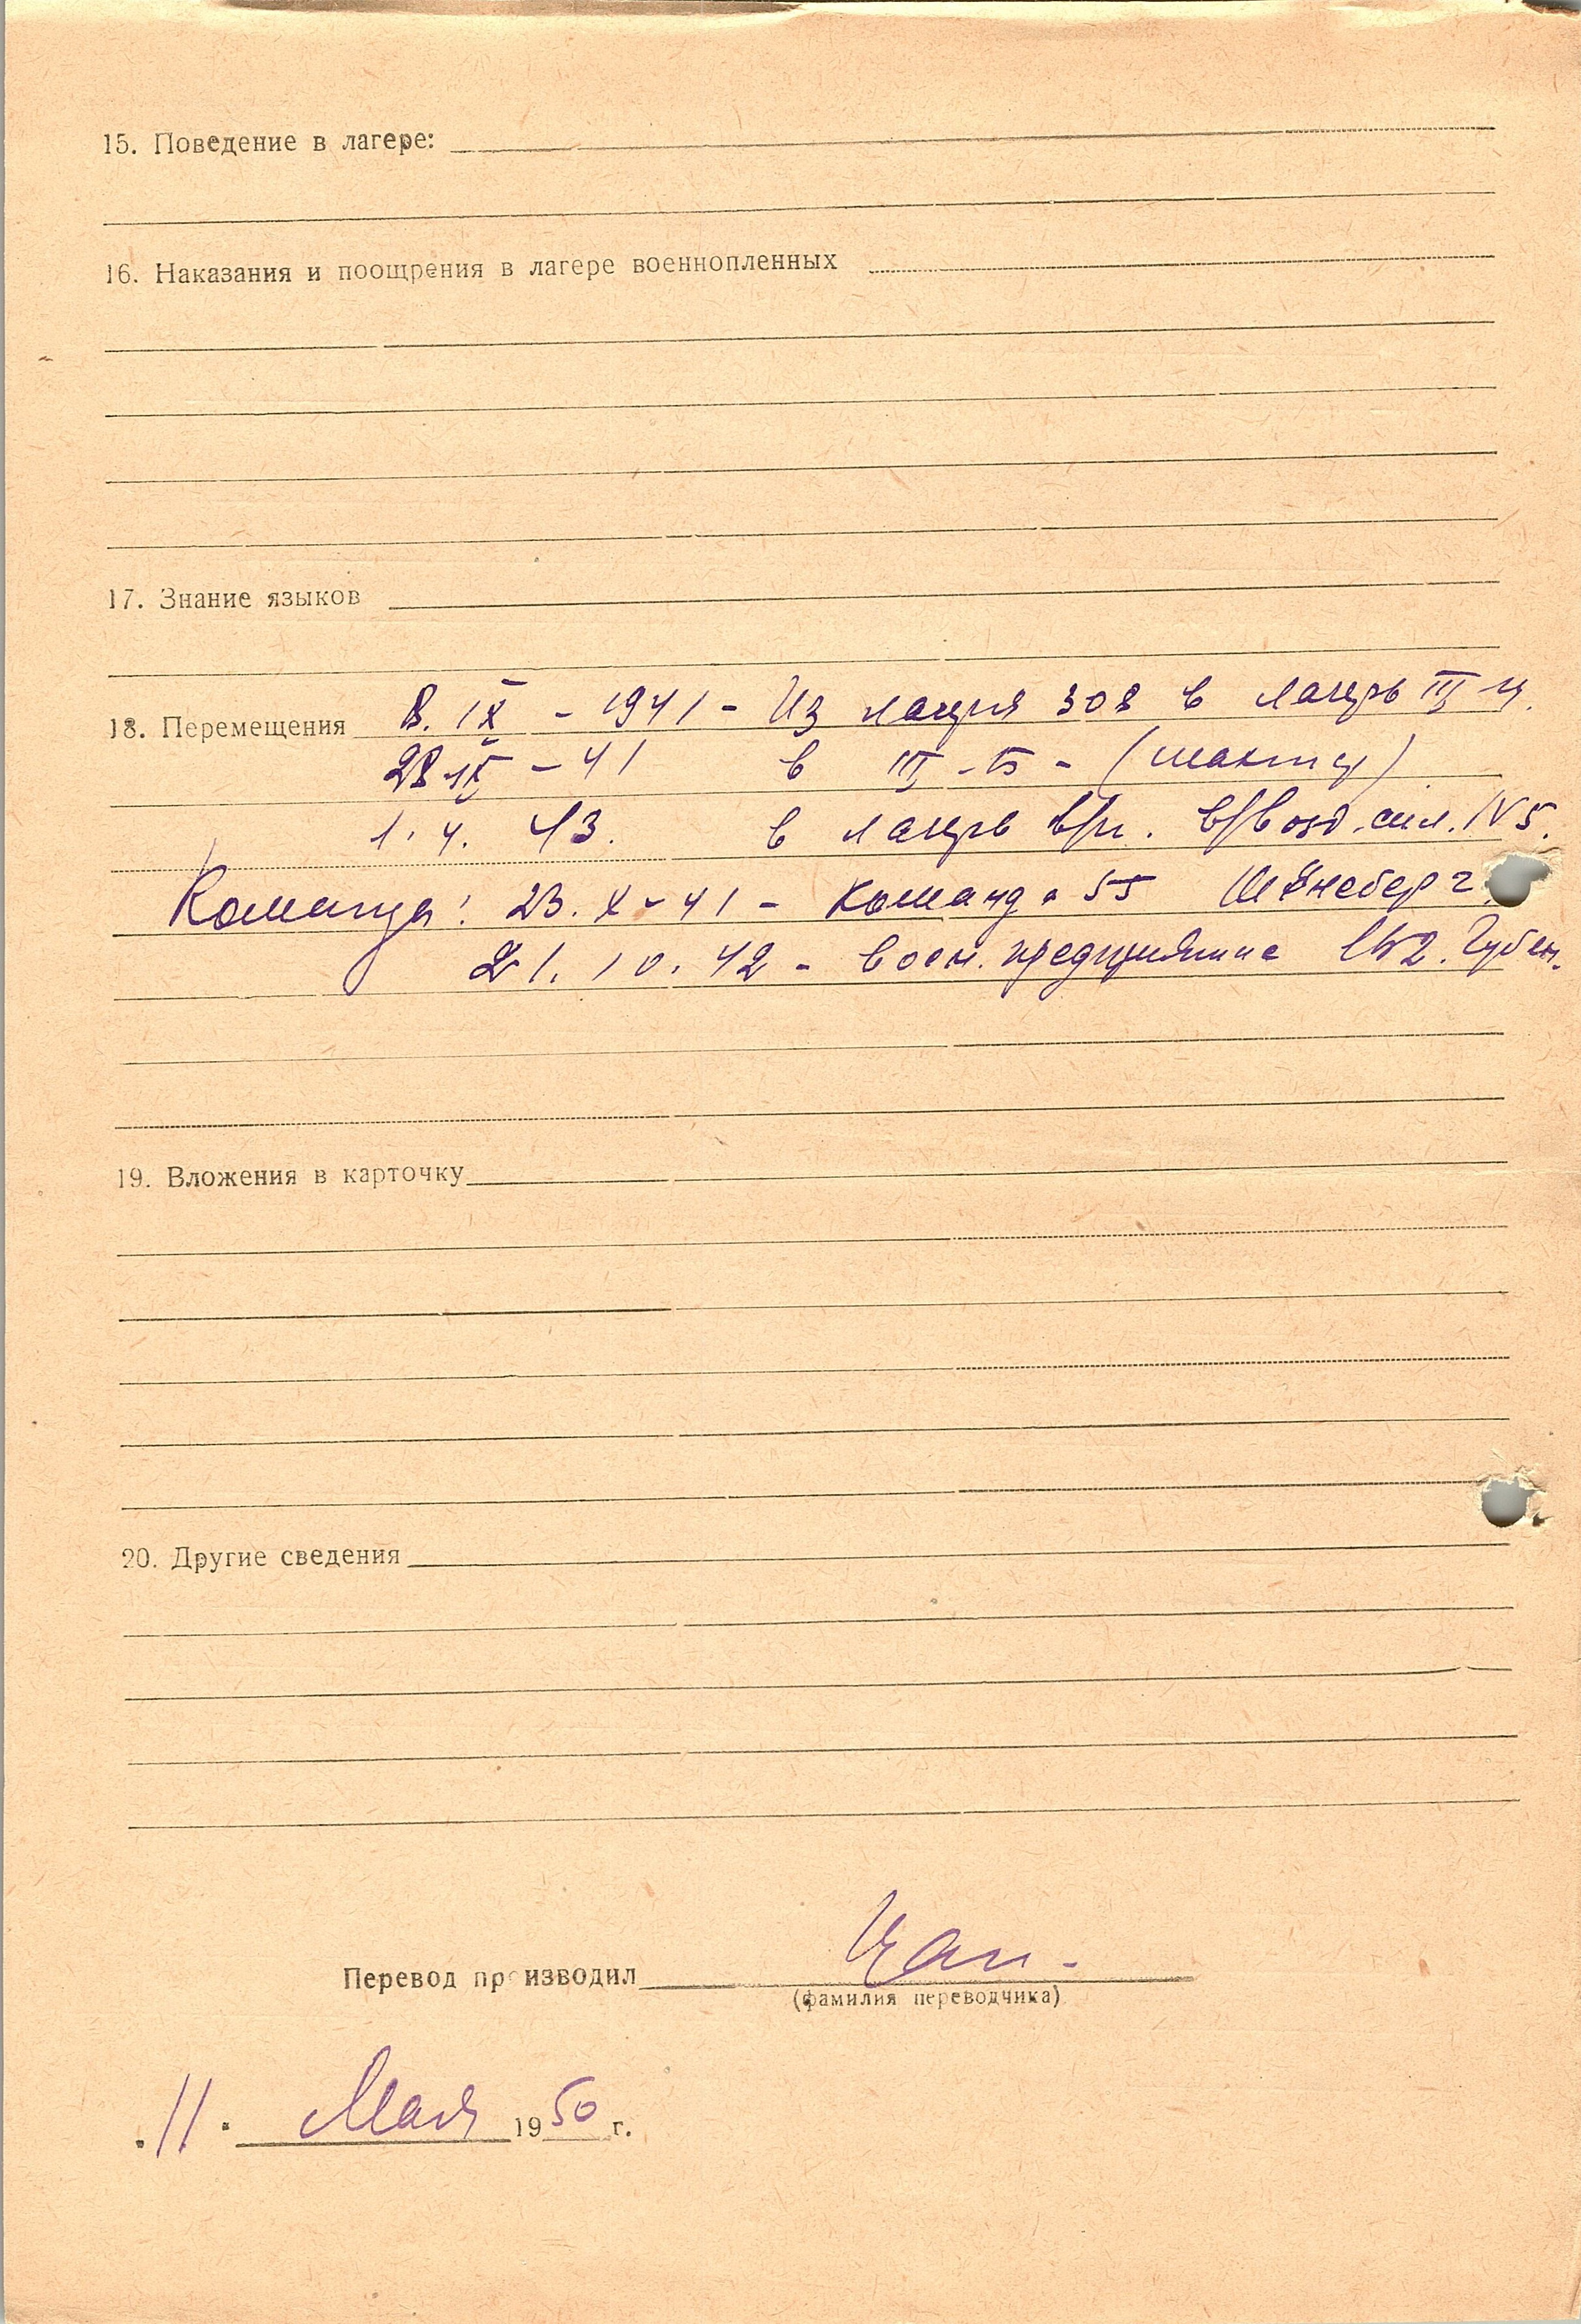 15. Поведение в лагере:
16. Наказания и поощрения в лагере военнопленных
17. Знание языков
18. Перемещения 8. IX - 1941 - Из лагеря 308 в лагерь III ц.
28 IX - 41 в III - Б - (шахты)
1. 4. 43. в лагерь в/п. в/возд. сил. IV 5.
Команды: 23. X - 41 - Команда 55 Шёнеберг.
21. 10. 42 - воен. предприятие Губен.
19. Вложения в карточку
20. Другие сведения
Перевод производил Цап.
(фамилия переводчика)
"11" Мая 1950 г.